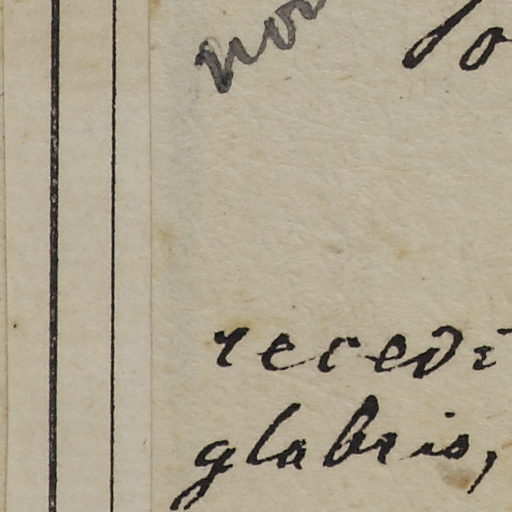 non
recedi
glabris,